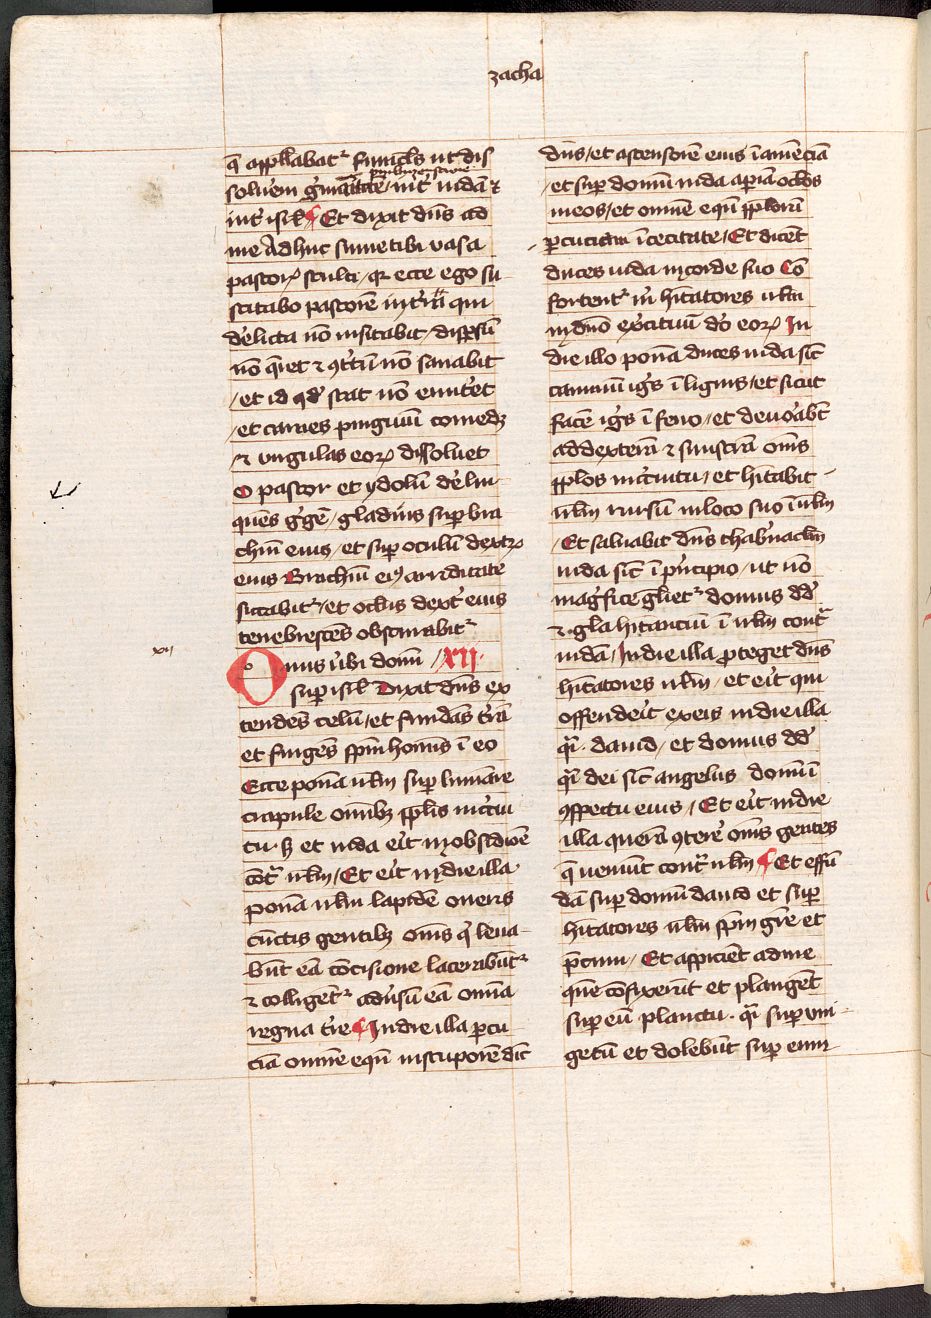 zacha
q̄ appllabatᷣ funicl̄s ut dis
soluerem g̾manitatē / int̾ iudā ⁊
int̾ isrl̄ ¶ Et dixit dn̄s ad
me Adhuc sume tibi vasa
pastoꝝ stulti / qꝛ ecce ego su-
scitabo pastorē in t̾ra qui
derelicta nō visitabit / disp̄sū
nō q̄ret ⁊ ꝯt̾tū nō sanabit
/ et id qd̾ stat nō enut̾et
/ et carnes pinguiū comedꝫ
/ ⁊ vngulas eoꝝ dissoluet
O pastor et ydolū derelin-
quēs g̾gē / gladius sup̄ bra
chiū eius / et sup̄ oculū dextꝝ
eius Brachiū eiꝰ ariditate
siccabitᷣ / et ocl̄us dext̾ eius
tenebrescēs obscurabitᷣ
xii
Onus v̾bi domī / XII·
sup̄ isrl̄ Dixit dn̄s ex
tendēs celū / et fundās t̾rā
et fingēs sp̄m hominis ī eo
Ecce ponā irl̄m sup̄ liminare
crapule om̄ibꝫ pp̄lis in c̾cui
tu · sꝫ et iuda erit in obsidiōē
cōt̾ irl̄m / Et erit in die illa
ponā irl̄m lapidē oneris
cūctis gentibꝫ om̄s q̄ leua-
būt eā cōcisione lacerabūtᷣ
⁊ colligētᷣ adu̾sū eā om̄ia
regna t̾re ¶ In die illa p̄cu
ciā omnē equū in stuporē dic̄
dn̄s / et ascensorē eius ī amēciā
/ et sup̄ domū iuda ap̄iā oclos
meos / et omnē equū pp̄lorū
p̄cuciam ī cecitate / Et dicēt
duces iuda in corde suo Cō
fortentᷣ m̄ hītatores irl̄m
in dn̄o exercituū dō eoꝝ In
die illo ponā duces iuda sic̄
caminū ig̾s ī lignis / et sicut
facē ig̾s ī feno / et deuorabūt
ad dexterā ⁊ sinistrā om̄s
pp̄los in c̾cuitu / et hītabit
irl̄m rursū in loco suo ī irl̄m
/ Et saluabit dn̄s thab̾nacl̄m
iuda sic̄ ī p̾ncipio / ut nō
mag̾fice gl̄ietᷣ domus dd̄
⁊ gl̄a hītantiū ī irl̄m cont̾
iudā / In die illa proteget dn̄s
hītatores irl̄m / et erit qui
offenderit ex eis in die illa
qͣ̄i · dauid / et domus dd̄
qͣ̄i dei sic̄ angelus domī ī
ꝯspectu eius / Et erit in die
illa querā ꝯterere om̄s gentes
q̄ veniūt cont̾ irl̄m ¶ Et effū
dā sup̄ domū dauid et sup̄
hītatores irl̄m sp̄m gr̄e et
p̄cum / Et aspicient ad me
quē cōfixerūt et plangēt
sup̄ eū planctu · qͣ̄i sup̄ vni-
genitū et dolebūt sup̄ eum